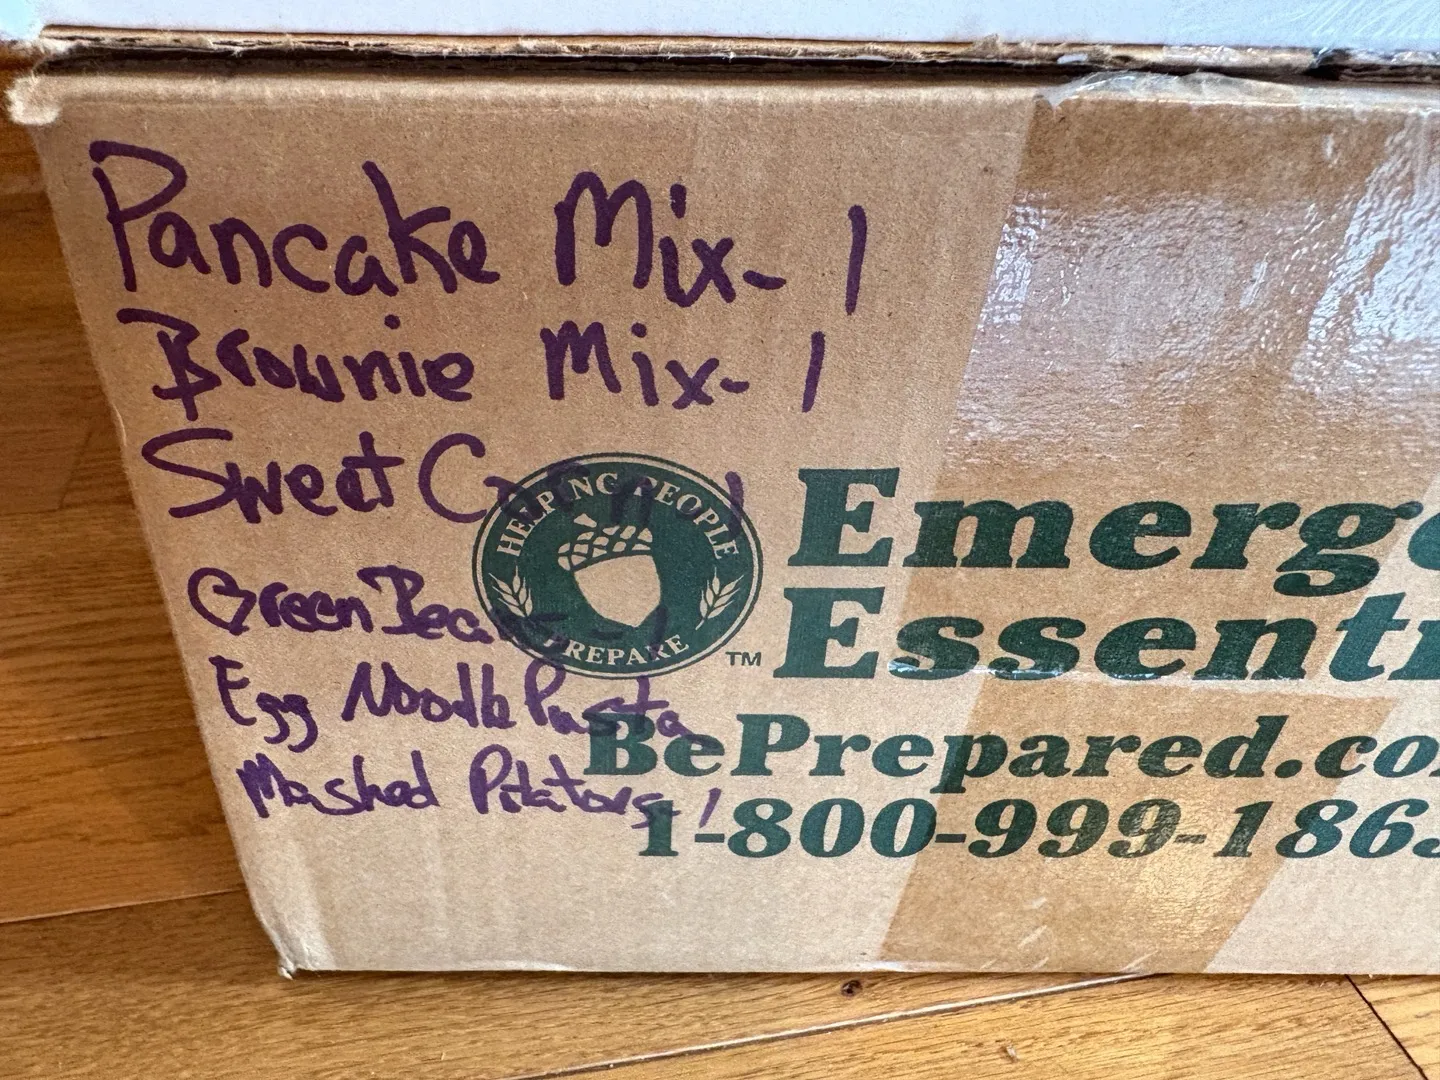 Pancake Mix- 1
Brownie Mix- 1
Sweet Corn 1
Green Beans - 1
Egg Noodle Pasta
Mashed Pitatoes 1
HELPING PEOPLE PREPARE
TM
Emerge
Essenti
BePrepared.co
1-800-999-1863